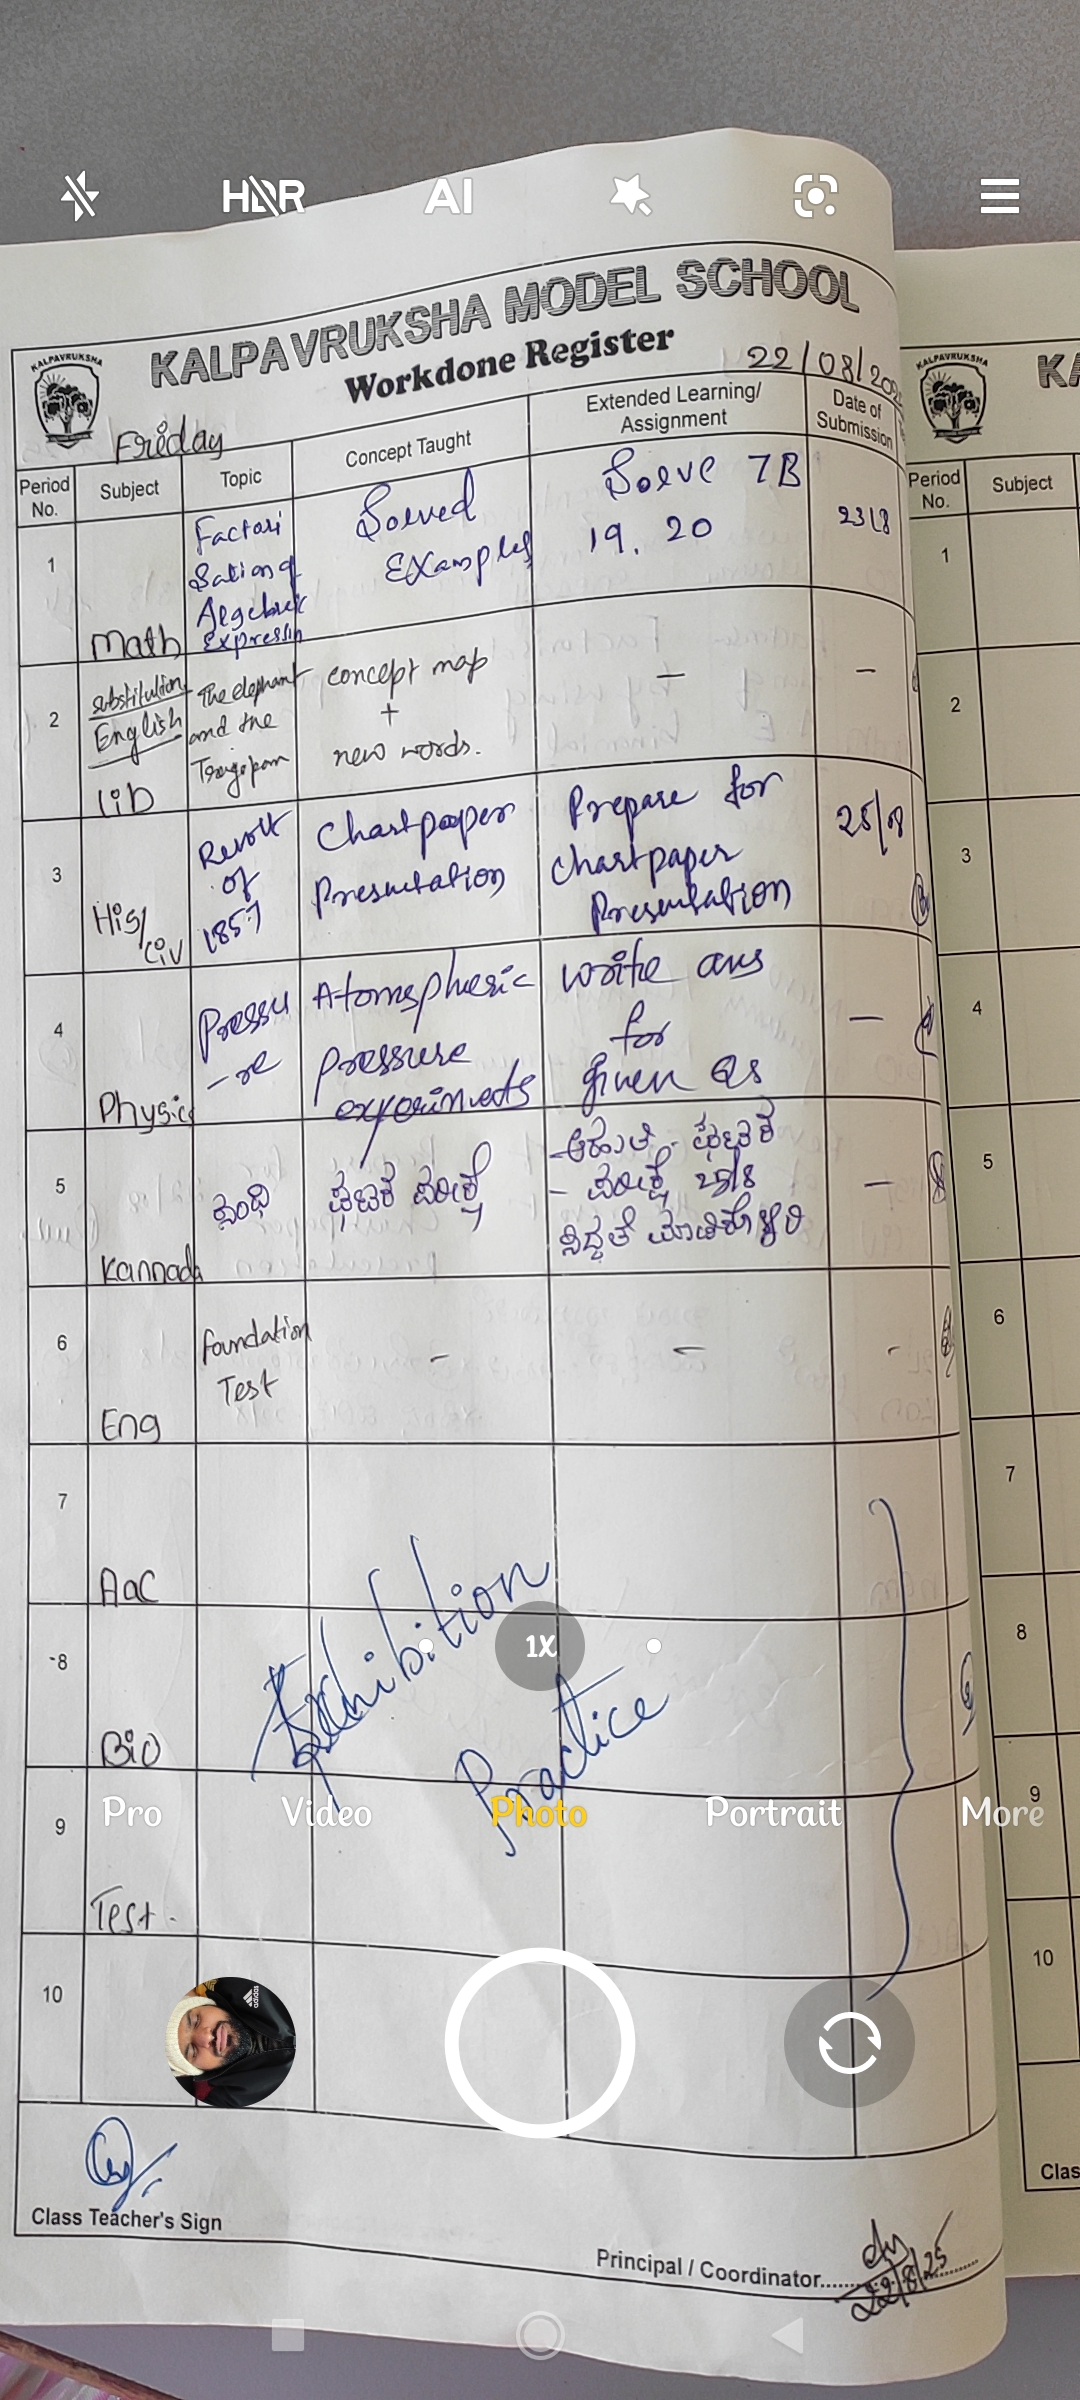 HDR
AI
KALPAVRUKSHA MODEL SCHOOL
KALPAVRUKSHA
Workdone Register
22/08/202
Friday
Period No.
Subject
Topic
Concept Taught
Extended Learning/ Assignment
Date of Submission
1
Math
Factori
sation of
Algebraic
Expression
Solved
Examples
Solve 7B
19. 20
23/8
2
substitution
English
Lib
The elephant
and the
concept map
+
new words.
—
—
3
His/
Civ
Revolt
of
1857
Chartpaper
Presentation
Prepare for
chartpaper
Presentation
25/08
4
Physics
Pressu
-re
Atomspheric
pressure
experiments
write ans
for
given Qs
—
5
Kannada
ಸಂಧಿ
ಘಟಕ ಪರೀಕ್ಷೆ
ಘಟಕ
- ಪರೀಕ್ಷೆ 25/8
ಸಿದ್ಧತೆ ಮಾಡಿಕೊಳ್ಳಿರಿ
—
6
Eng
foundation
Test
-
—
-
7
AOC
8
Bio
Exhibition
Practice
9
Test.
10
1X
Pro
Video
Photo
Portrait
More
Class Teacher's Sign
Principal / Coordinator
22/8/25
KALPAVRUKSHA
KA
Period No.
Subject
1
2
3
4
5
6
7
8
9
10
Clas